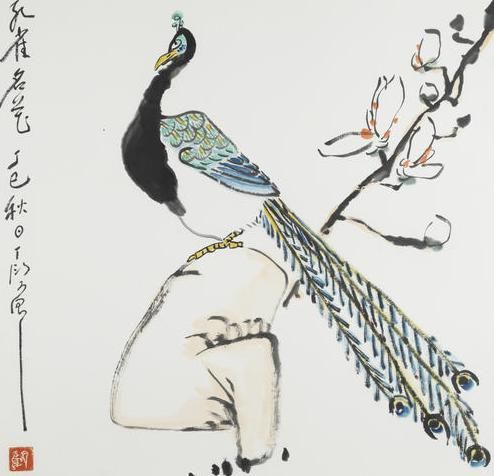 孔雀名花 丁巳秋日 丁衍庸